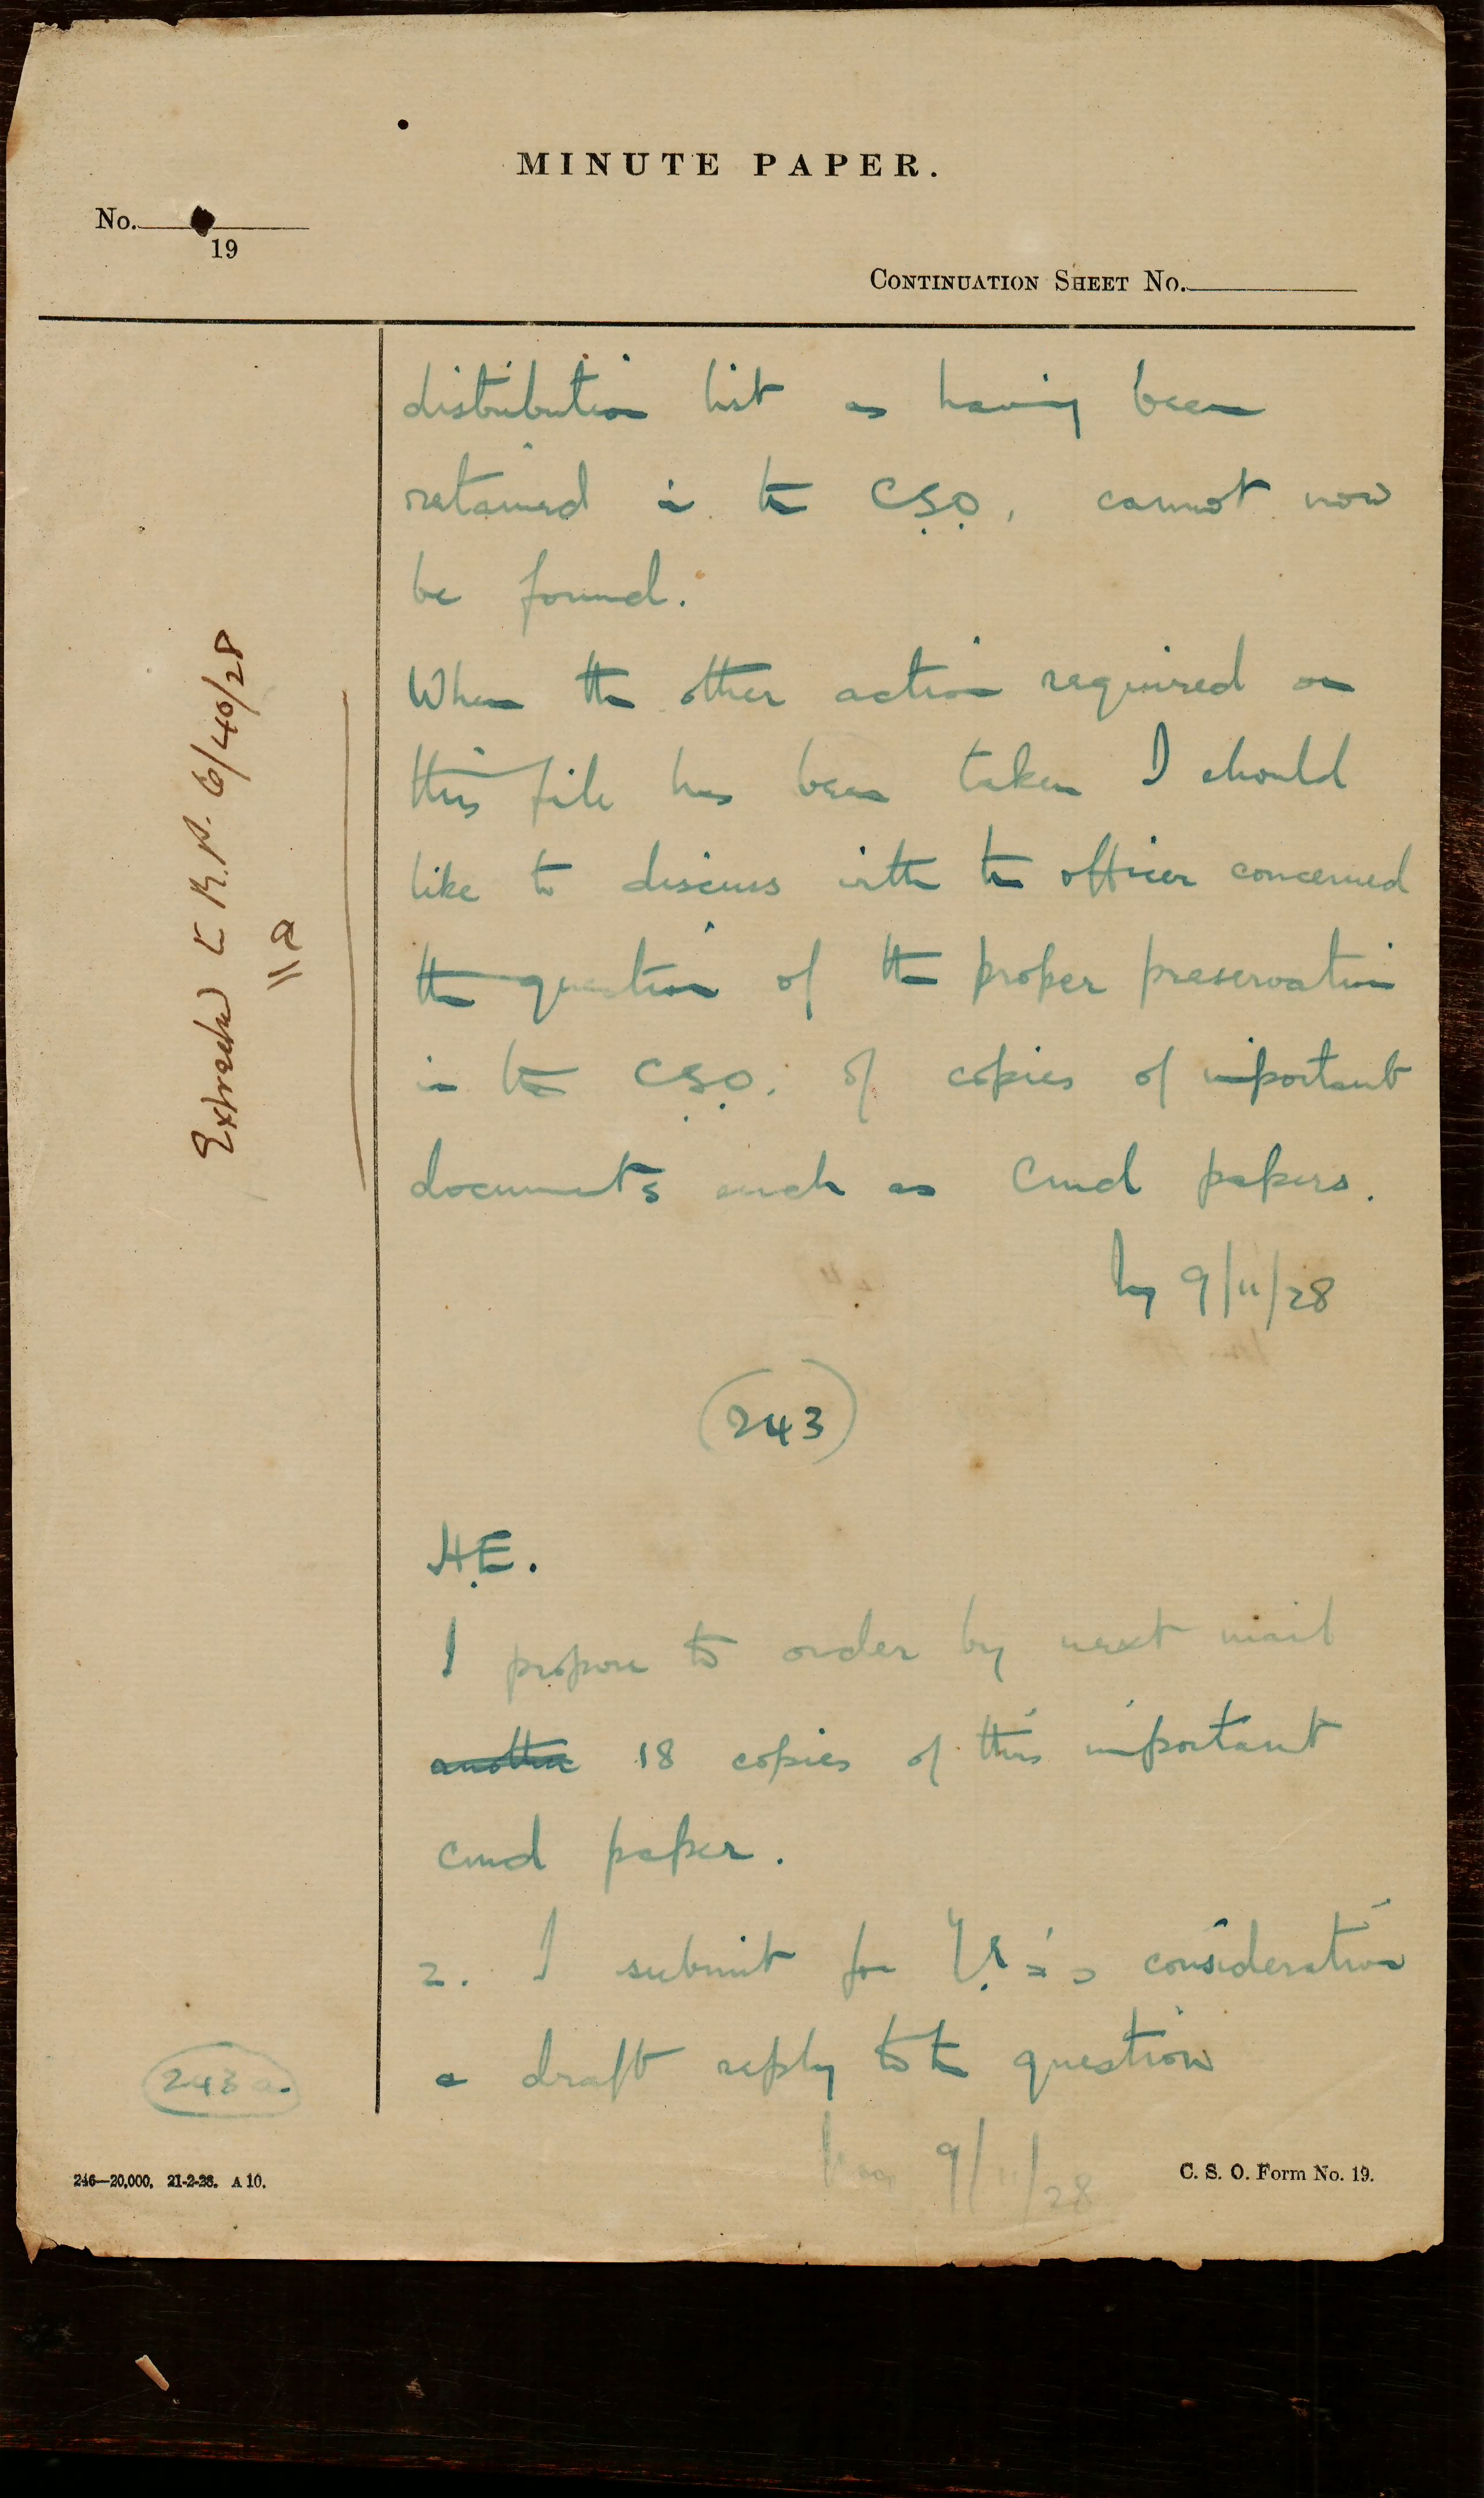 MINUTE PAPER.
No.
19
CONTINUATION SHEET No.
distribution list as having been
retained in the C.S.O., cannot now
be found.
When the other action required on
this file has been taken I should
like to discuss with the officer concerned
the question of the proper preservation
in the C.S.O. of copies of important
documents such as Cmd papers.
9/11/28
Extracted 6/40/28
243
H.E.
I propose to order by next mail
another 18 copies of this important
Cmd paper.
2. I submit for Y.E.'s consideration
a draft reply to the question
243a.
9/11/28
246—20,000. 21-2-28. A 10.
C. S. O. Form No. 19.